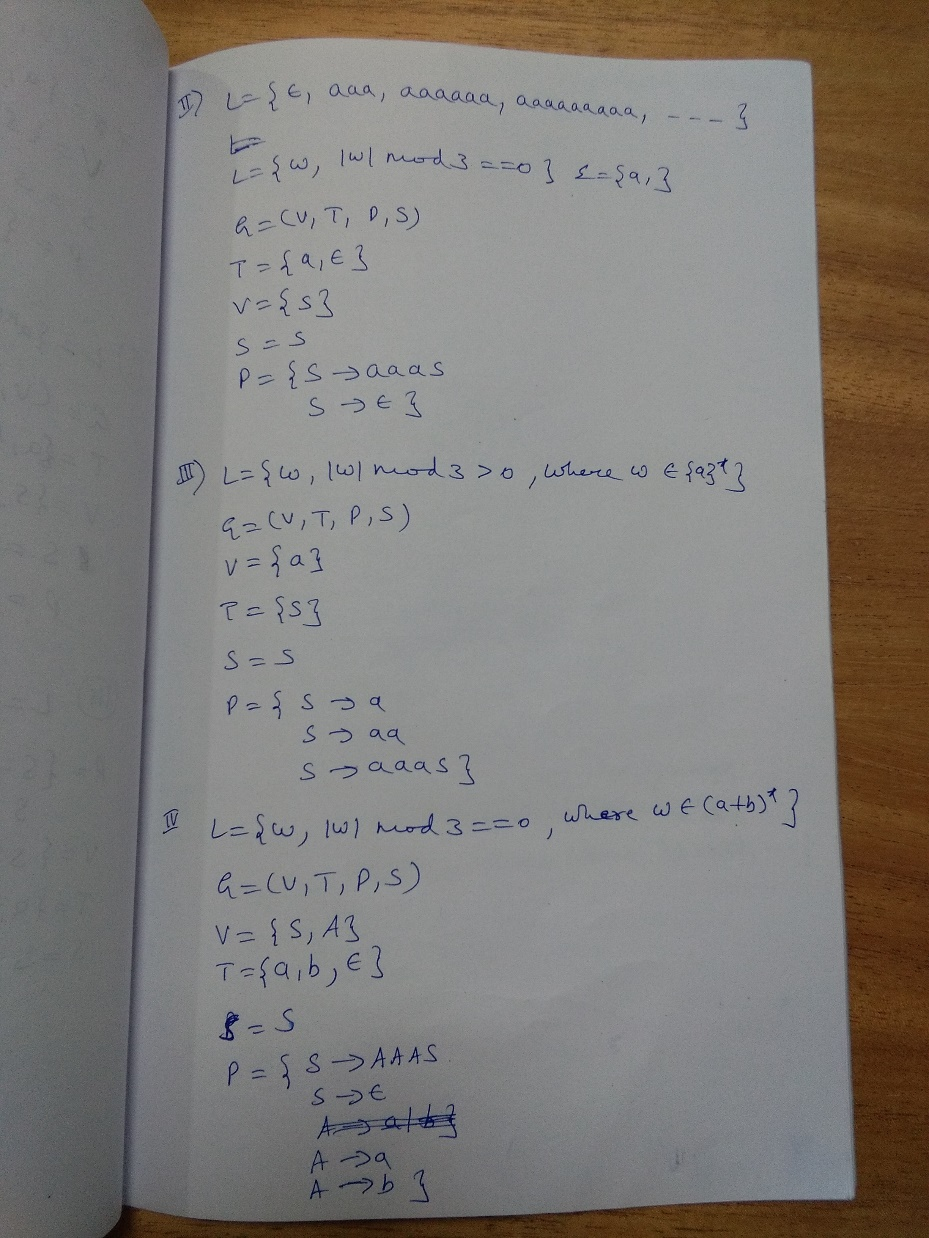 II) L={ϵ, aaa, aaaaaa, aaaaaaaaa, ---- }
L={w, |w| mod 3 ==0} Σ={a,}
G=(V, T, P, S)
T={a,ϵ}
V={S}
S=S
P={S→aaaS
S→ϵ}
III) L={w, |w| mod 3>0, where w ϵ {a}*}
G=(V,T, P,S)
V={a}
T={S}
S=S
P={ S→a
S→aa
S→aaaS}
IV L={w, |w| mod 3==0, where w ϵ (a+b)*}
G=(V,T,P,S)
V={S,A}
T={a,b,ϵ}
S=S
P={ S→AAAS
S→ϵ
A→a|b}
A→a
A→b }